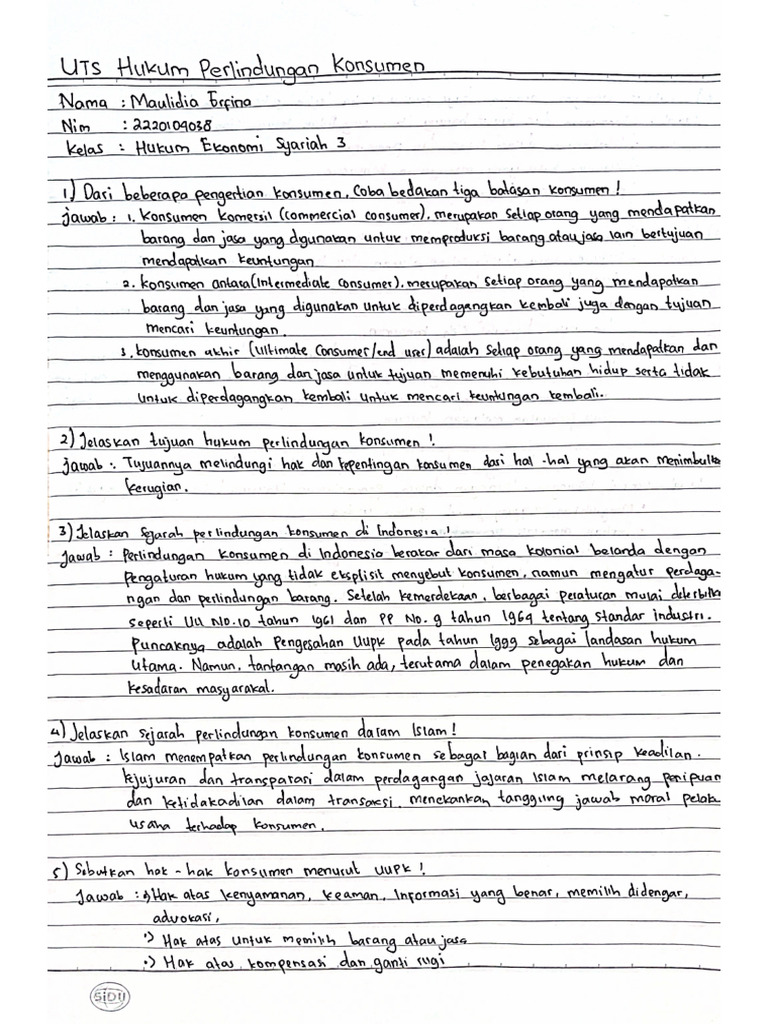 UTS Hukum Perlindungan Konsumen
Nama : Maulidia Erfina
Nim : 2220104038
Kelas : Hukum Ekonomi Syariah 3
1) Dari beberapa pengertian konsumen, Coba bedakan tiga batasan konsumen !
Jawab : 1. Konsumen Komersil (commercial consumer), merupakan setiap orang yang mendapatkan
barang dan jasa yang digunakan untuk memproduksi barang atau jasa lain bertujuan
mendapatkan keuntungan
2. Konsumen antara (Intermediate consumer), merupakan setiap orang yang mendapatkan
barang dan jasa yang digunakan untuk diperdagangkan kembali juga dengan tujuan
mencari keuntungan.
3. Konsumen akhir (Ultimate Consumer/end user) adalah setiap orang yang mendapatkan dan
menggunakan barang dan jasa untuk tujuan memenuhi kebutuhan hidup serta tidak
untuk diperdagangkan kembali untuk mencari keuntungan kembali.
2) Jelaskan tujuan hukum perlindungan konsumen !
Jawab : Tujuannya melindungi hak dan kepentingan konsumen dari hal-hal yang akan menimbulka
kerugian.
3) Jelaskan sejarah perlindungan konsumen di Indonesia !
Jawab : Perlindungan konsumen di Indonesia berakar dari masa kolonial belanda dengan
pengaturan hukum yang tidak eksplisit menyebut konsumen, namun mengatur perdaga-
ngan dan perlindungan barang. Setelah kemerdekaan, berbagai peraturan mulai diterbitka
seperti UU No.10 tahun 1961 dan PP No. 9 tahun 1964 tentang standar industri.
Puncaknya adalah Pengesahan UUPK pada tahun 1999 sebagai landasan hukum
utama. Namun, tantangan masih ada, terutama dalam penegakan hukum dan
kesadaran masyarakat.
4) Jelaskan sejarah perlindungan konsumen dalam Islam !
Jawab : Islam menempatkan perlindungan konsumen sebagai bagian dari prinsip keadilan.
kejujuran dan transparasi dalam perdagangan jajaran Islam melarang penipuan
dan ketidakadilan dalam transaksi, menekankan tanggung jawab moral pelak
usaha terhadap konsumen.
5) Sebutkan hak-hak konsumen menurut UUPK !
Jawab : •) Hak atas kenyamanan, keaman, Informasi yang benar, memilih didengar,
advokasi,
•) Hak atas untuk memilih barang atau jasa
•) Hak atas kompensasi dan ganti rugi
SiDU